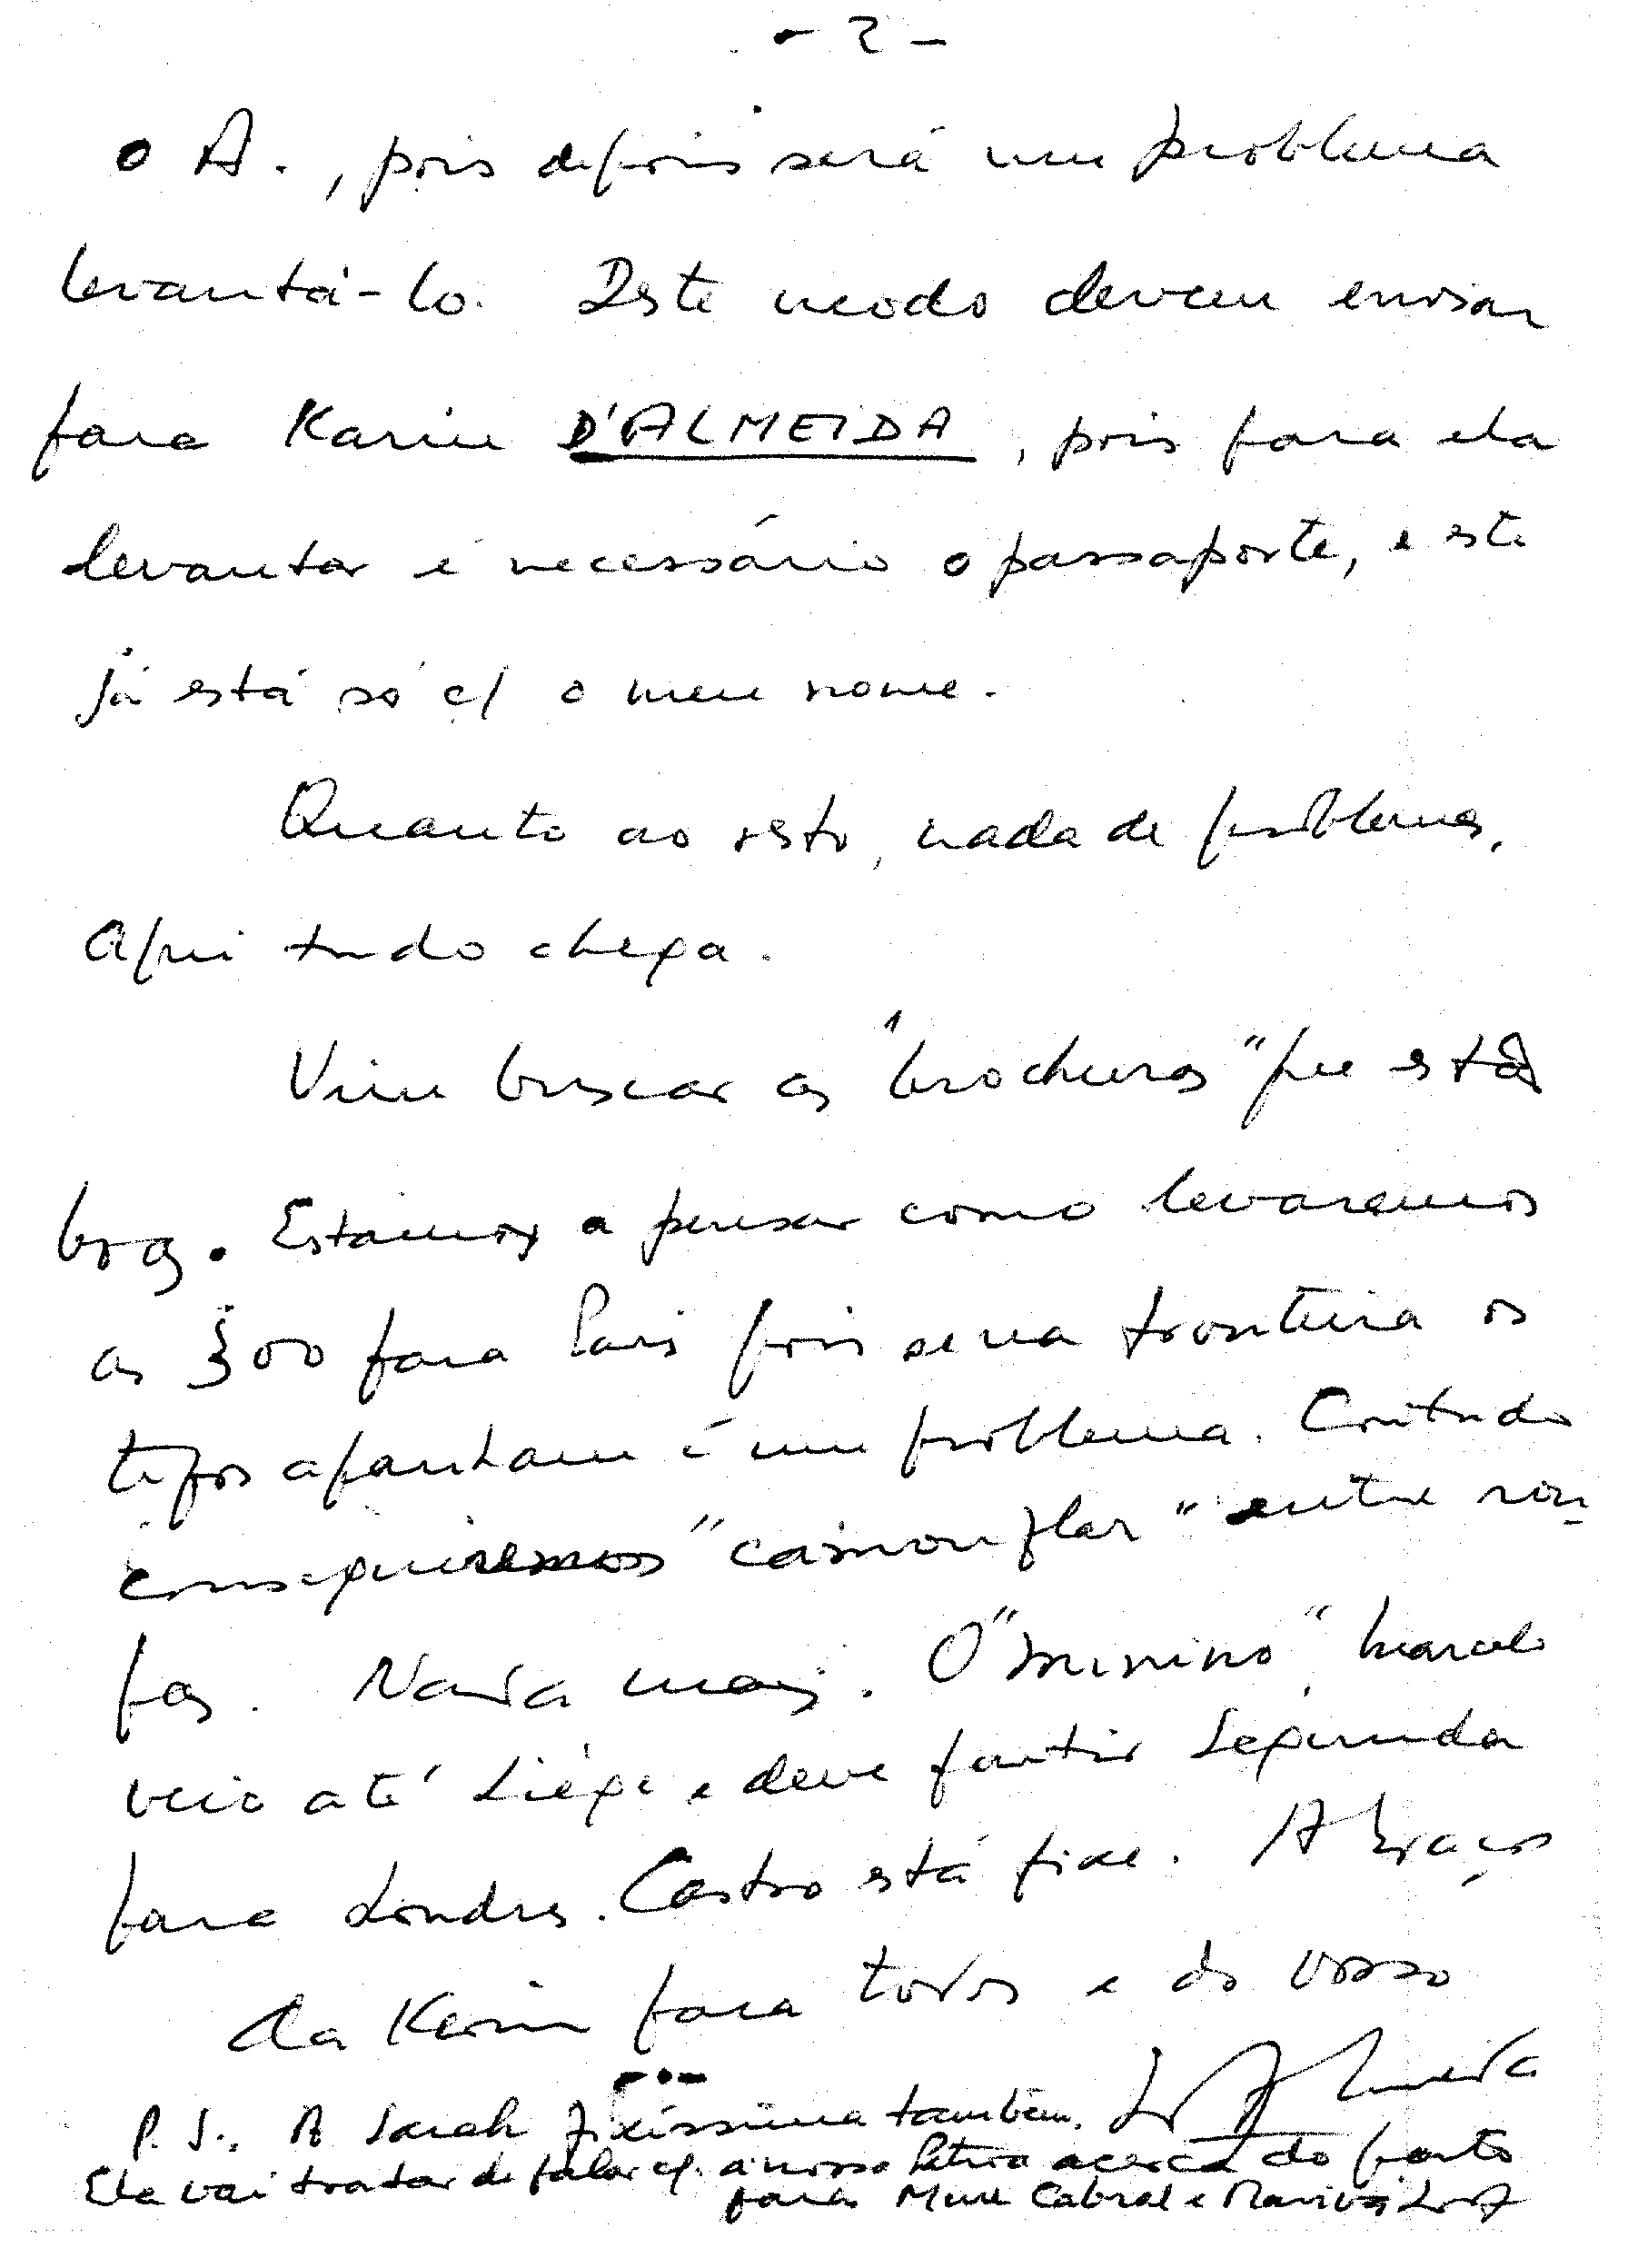 - 2 -
o A., pois depois será um problema
levantá-lo. Deste modo devem enviar
para Karin D'ALMEIDA, pois para ela
levantar é necessário o passaporte, e este
já está só c/ o meu nome.
Quanto ao resto, nada de problemas,
Aqui tudo chega.
Vim buscar as "brochuras" que estão
boas. Estamos a pensar como levaremos
as 300 para Paris pois se na fronteira os
tipos apanham é um problema. Contudo
conseguiremos "camouflar" entre rou-
pas. Nada mais. O "menino" Marcelo
veio até Liège e deve partir Segunda
para Londres. Castro está fixe. Abraços
da Karin para todos e do vosso
L. d'Almeida
P. S., A Sarah fixíssima também.
Ela vai tratar de falar c/ a nossa acerca do parto
para Mme Cabral e